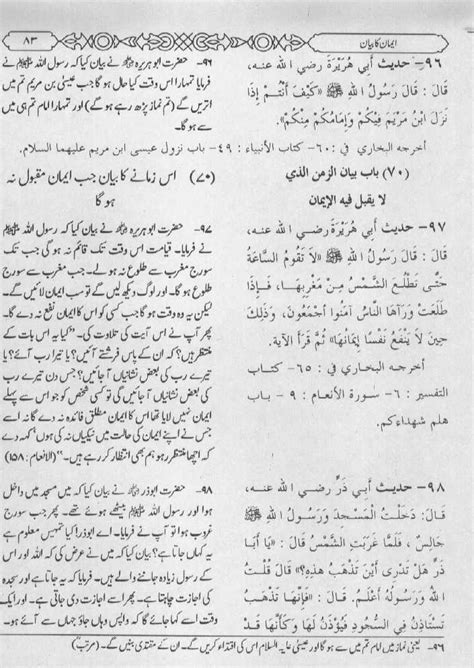 ایمان کا بیان
۸۳
٩٦- حديث أَبِي هُرَيْرَةَ رضي الله عنه،
قَالَ: قَالَ رَسُولُ اللهِ ﷺ «كَيْفَ أَنْتُمْ إِذَا
نَزَلَ ابْنُ مَرْيَمَ فِيكُمْ وَإِمَامُكُمْ مِنْكُمْ».
أخرجه البخاري في: ٦٠- كتاب الأنبياء: ٤٩- باب نزول عيسى ابن مريم عليهما السلام.
(٧٠) باب بيان الزمن الذي
لا يقبل فيه الإيمان
٩٧- حديث أَبِي هُرَيْرَةَ رضي الله عنه،
قَالَ: قَالَ رَسُولُ اللهِ ﷺ «لَا تَقُومُ السَّاعَةُ
حَتَّى تَطْلُعَ الشَّمْسُ مِنْ مَغْرِبِهَا، فَإِذَا
طَلَعَتْ وَرَآهَا النَّاسُ آمَنُوا أَجْمَعُونَ، وَذَلِكَ
حِينَ لَا يَنْفَعُ نَفْسًا إِيمَانُهَا» ثُمَّ قَرَأَ الآيَةَ.
أخرجه البخاري في: ٦٥- كتاب
التفسير: ٦- سورة الأنعام: ٩- باب
هلم شهداءكم.
٩٨- حديث أَبِي ذَرٍّ رضي الله عنه،
قَالَ: دَخَلْتُ الْمَسْجِدَ وَرَسُولُ اللهِ ﷺ
جَالِسٌ، فَلَمَّا غَرَبَتِ الشَّمْسُ قَالَ: «يَا أَبَا
ذَرٍّ هَلْ تَدْرِي أَيْنَ تَذْهَبُ هَذِهِ؟» قَالَ قُلْتُ
اللهُ وَرَسُولُهُ أَعْلَمُ. قَالَ: «فَإِنَّهَا تَذْهَبُ
تَسْتَأْذِنُ فِي السُّجُودِ فَيُؤْذَنُ لَهَا وَكَأَنَّهَا قَدْ
۹۶- حضرت ابوہریرہؓ نے بیان کیا کہ رسول اللہ ﷺ نے
فرمایا تمہارا اس وقت کیا حال ہو گا جب عیسیٰ بن مریم تم میں
اتریں گے (تم نماز پڑھ رہے ہو گے) اور تمہارا امام تم ہی میں
سے ہو گا۔
(۷۰) اس زمانے کا بیان جب ایمان مقبول نہ
ہو گا
۹۷- حضرت ابوہریرہؓ نے بیان کیا کہ رسول اللہ ﷺ
نے فرمایا۔ قیامت اس وقت تک قائم نہ ہو گی جب تک
سورج مغرب سے طلوع نہ ہو لے۔ جب مغرب سے سورج
طلوع ہو گا۔ اور لوگ دیکھ لیں گے تو سب ایمان لائیں گے۔
لیکن یہ وقت وہ ہو گا جب کسی کو اس کا ایمان نفع نہ دے گا۔
پھر آپ نے اس آیت کی تلاوت کی۔ ”کیا یہ اس بات کے
منتظر ہیں؟ کہ ان کے پاس فرشتے آئیں؟ یا تیرا رب آئے؟ یا
تیرے رب کی بعض نشانیاں آجائیں؟ جس دن تیرے رب
کی بعض نشانیاں آجائیں گی تو کسی شخص کو جو اس سے پہلے
ایمان نہیں لایا تھا اس کا ایمان مطلق فائدہ نہ دے گا نہ اسے
جس نے اپنے ایمان کی حالت میں نیکیاں نہ کی ہوں، کہہ دے
اچھا منتظر رہو ہم بھی انتظار کر رہے ہیں۔“ (الانعام: ۱۵۸)
۹۸- حضرت ابوذرؓ نے بیان کیا کہ میں مسجد میں داخل
ہوا اور رسول اللہ ﷺ بیٹھے ہوئے تھے۔ پھر جب سورج
غروب ہوا تو آپ نے فرمایا۔ اے ابوذر! کیا تمہیں معلوم ہے
یہ کہاں جاتا ہے؟ بیان کیا کہ میں نے عرض کی کہ اللہ اور اس
کے رسول زیادہ جاننے والے ہیں۔ فرمایا کہ یہ جاتا ہے اور سجدہ
کی اجازت چاہتا ہے پھر اسے اجازت دی جاتی ہے۔ اور ایک
وقت اسے کہا جائے گا کہ واپس وہاں جاؤ جہاں سے آئے ہو۔
۹۶- یعنی نماز میں امام تم میں سے ہو گا اور عیسیٰ علیہ السلام اس کی اقتداء کریں گے۔ ان کے مقتدی بنیں گے۔ (مرتبؒ)